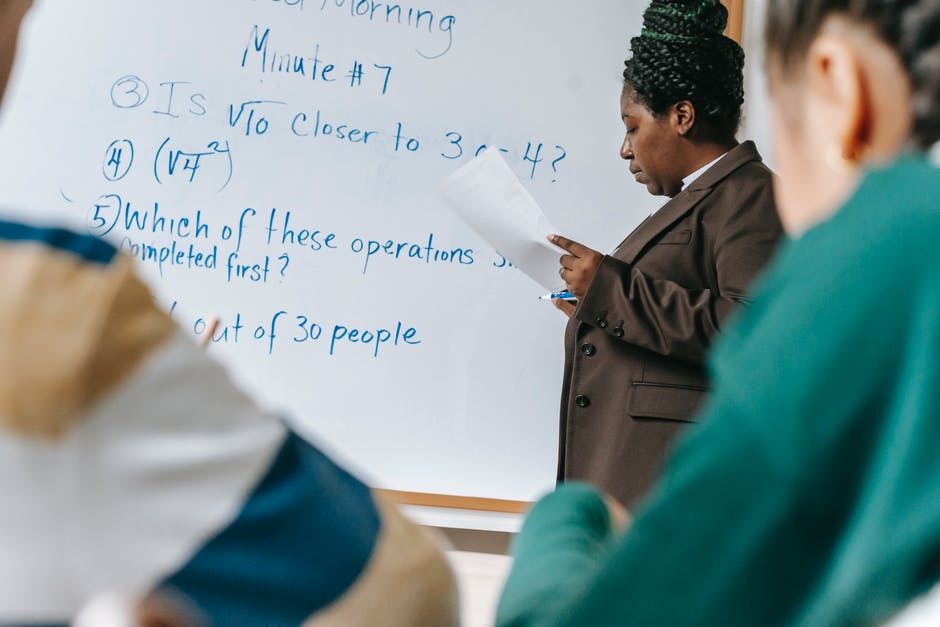 Morning
Minute #7
③ Is √10 Closer to 3 or 4?
④ (√4)²
⑤ Which of these operations
Completed first?
out of 30 people